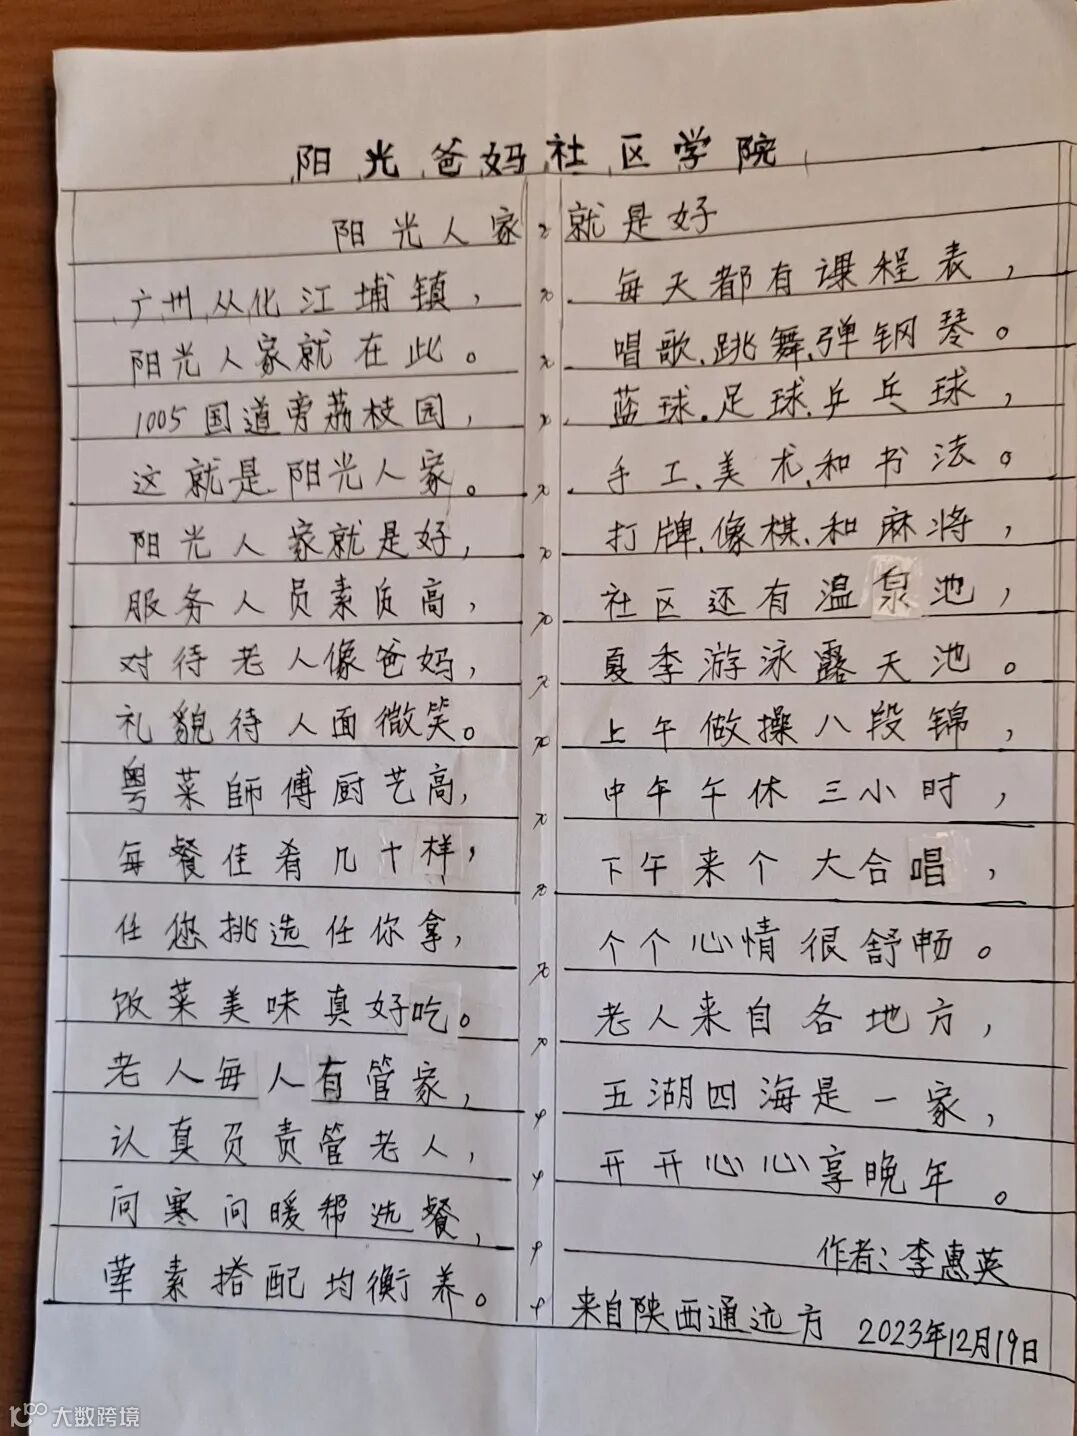 阳光爸妈社区学院
阳光人家就是好
广州从化江埔镇，
阳光人家就在此。
1005国道旁荔枝园，
这就是阳光人家。
阳光人家就是好，
服务人员素质高，
对待老人像爸妈，
礼貌待人面微笑。
粤菜師傅厨艺高，
每餐佳肴几十样，
任您挑选任你拿，
饭菜美味真好吃。
老人每人有管家，
认真负责管老人，
问寒问暖帮选餐，
荤素搭配均衡养。
每天都有课程表，
唱歌、跳舞、弹钢琴。
蓝球、足球、乒乓球，
手工、美术、和书法。
打牌、像棋、和麻将，
社区还有温泉池，
夏季游泳露天池。
上午做操八段锦，
中午午休三小时，
下午来个大合唱，
个个心情很舒畅。
老人来自各地方，
五湖四海是一家，
开开心心享晚年。
作者：李惠英
来自陕西通远方 2023年12月19日
大数跨境